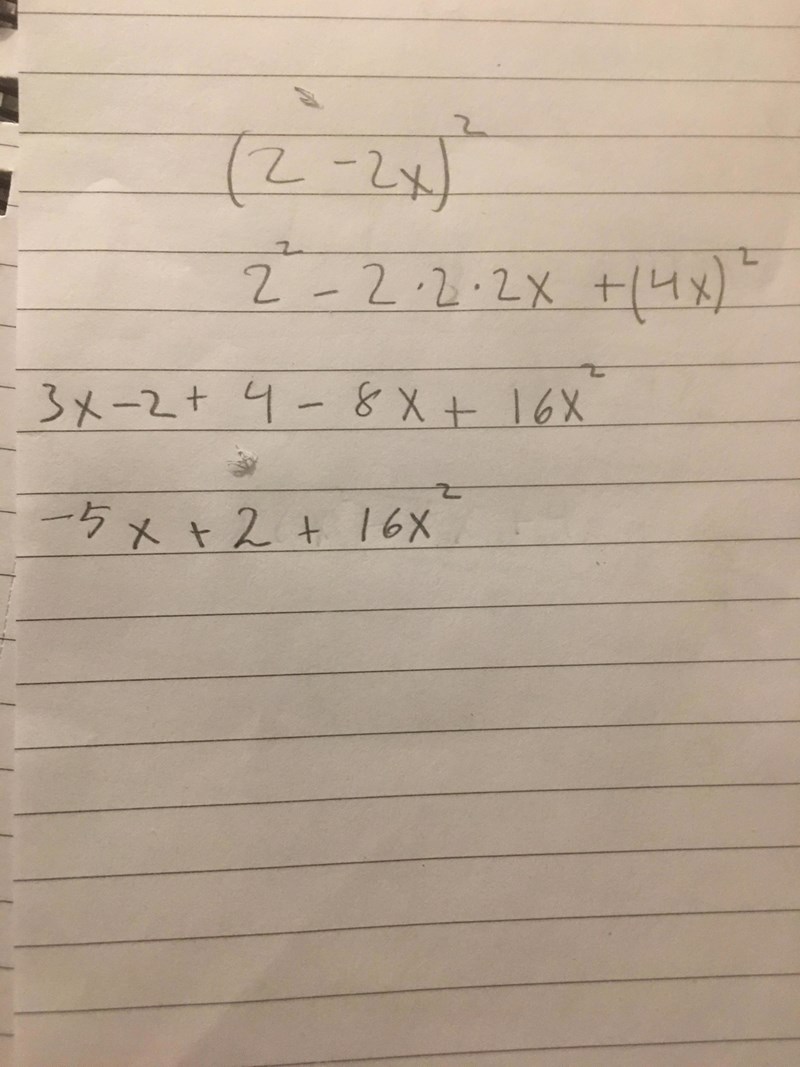 (2 - 2x)²
2² - 2·2·2x + (4x)²
3x - 2 + 4 - 8x + 16x²
-5x + 2 + 16x²